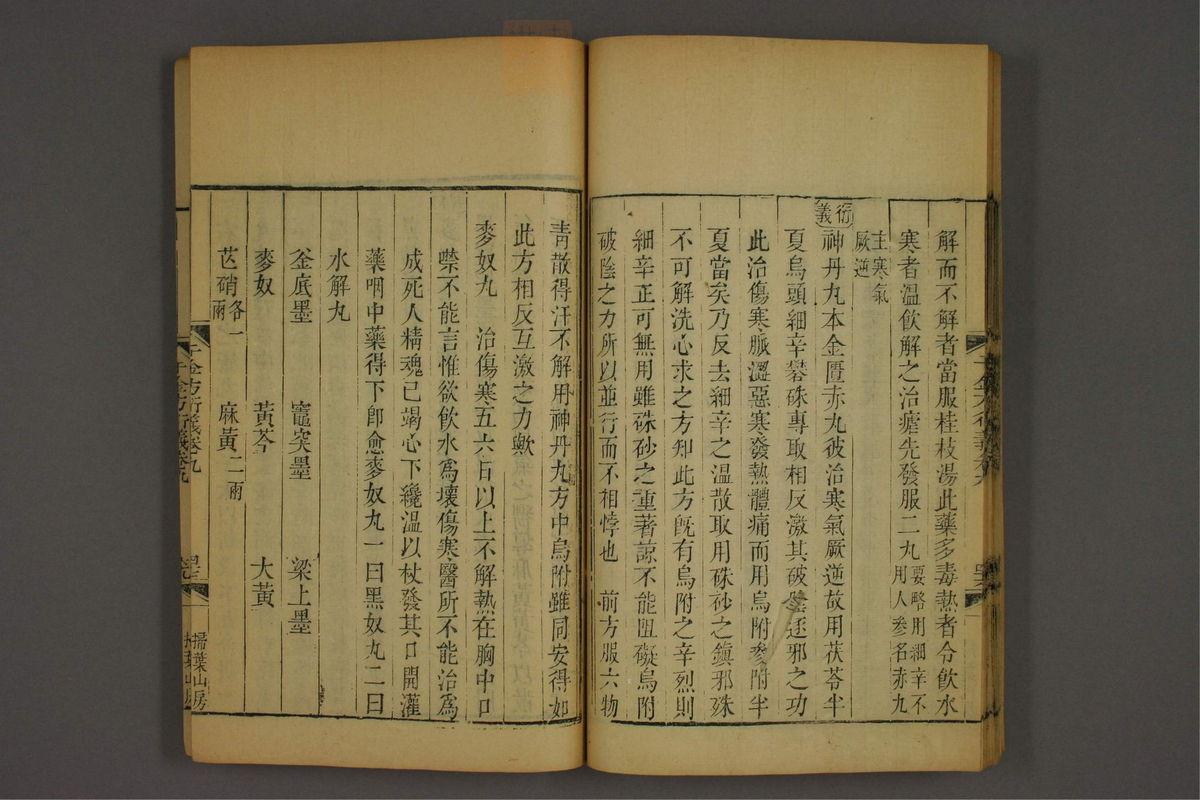 解而不解者當服桂枝湯此藥多毒熱者令飲水
寒者溫飲解之治瘧先發服二丸要略用細辛不用人參名赤丸
主寒氣厥逆
衍義
神丹丸本金匱赤丸彼治寒氣厥逆故用茯苓半
夏烏頭細辛礬硃專取相反激其破陰逐邪之功
此治傷寒脈澀惡寒發熱體痛而用烏附參附半
夏當矣乃反去細辛之溫散取用硃砂之鎭邪殊
不可解洗心求之方知此方旣有烏附之辛烈則
細辛正可無用雖硃砂之重著諒不能阻礙烏附
破陰之力所以並行而不相悖也 前方服六物
靑散得汗不解用神丹丸方中烏附雖同安得如
此方相反互激之力歟
麥奴丸 治傷寒五六日以上不解熱在胸中口
噤不能言惟欲飮水爲壞傷寒醫所不能治爲
成死人精魂已竭心下纔溫以杖發其口開灌
藥咽中藥得下卽愈麥奴丸一曰黑奴丸二曰
水解丸
釜底墨 竈突墨 梁上墨
麥奴 黃芩 大黃
芒硝各一兩 麻黃二兩
千金方衍義卷九
掃葉山房